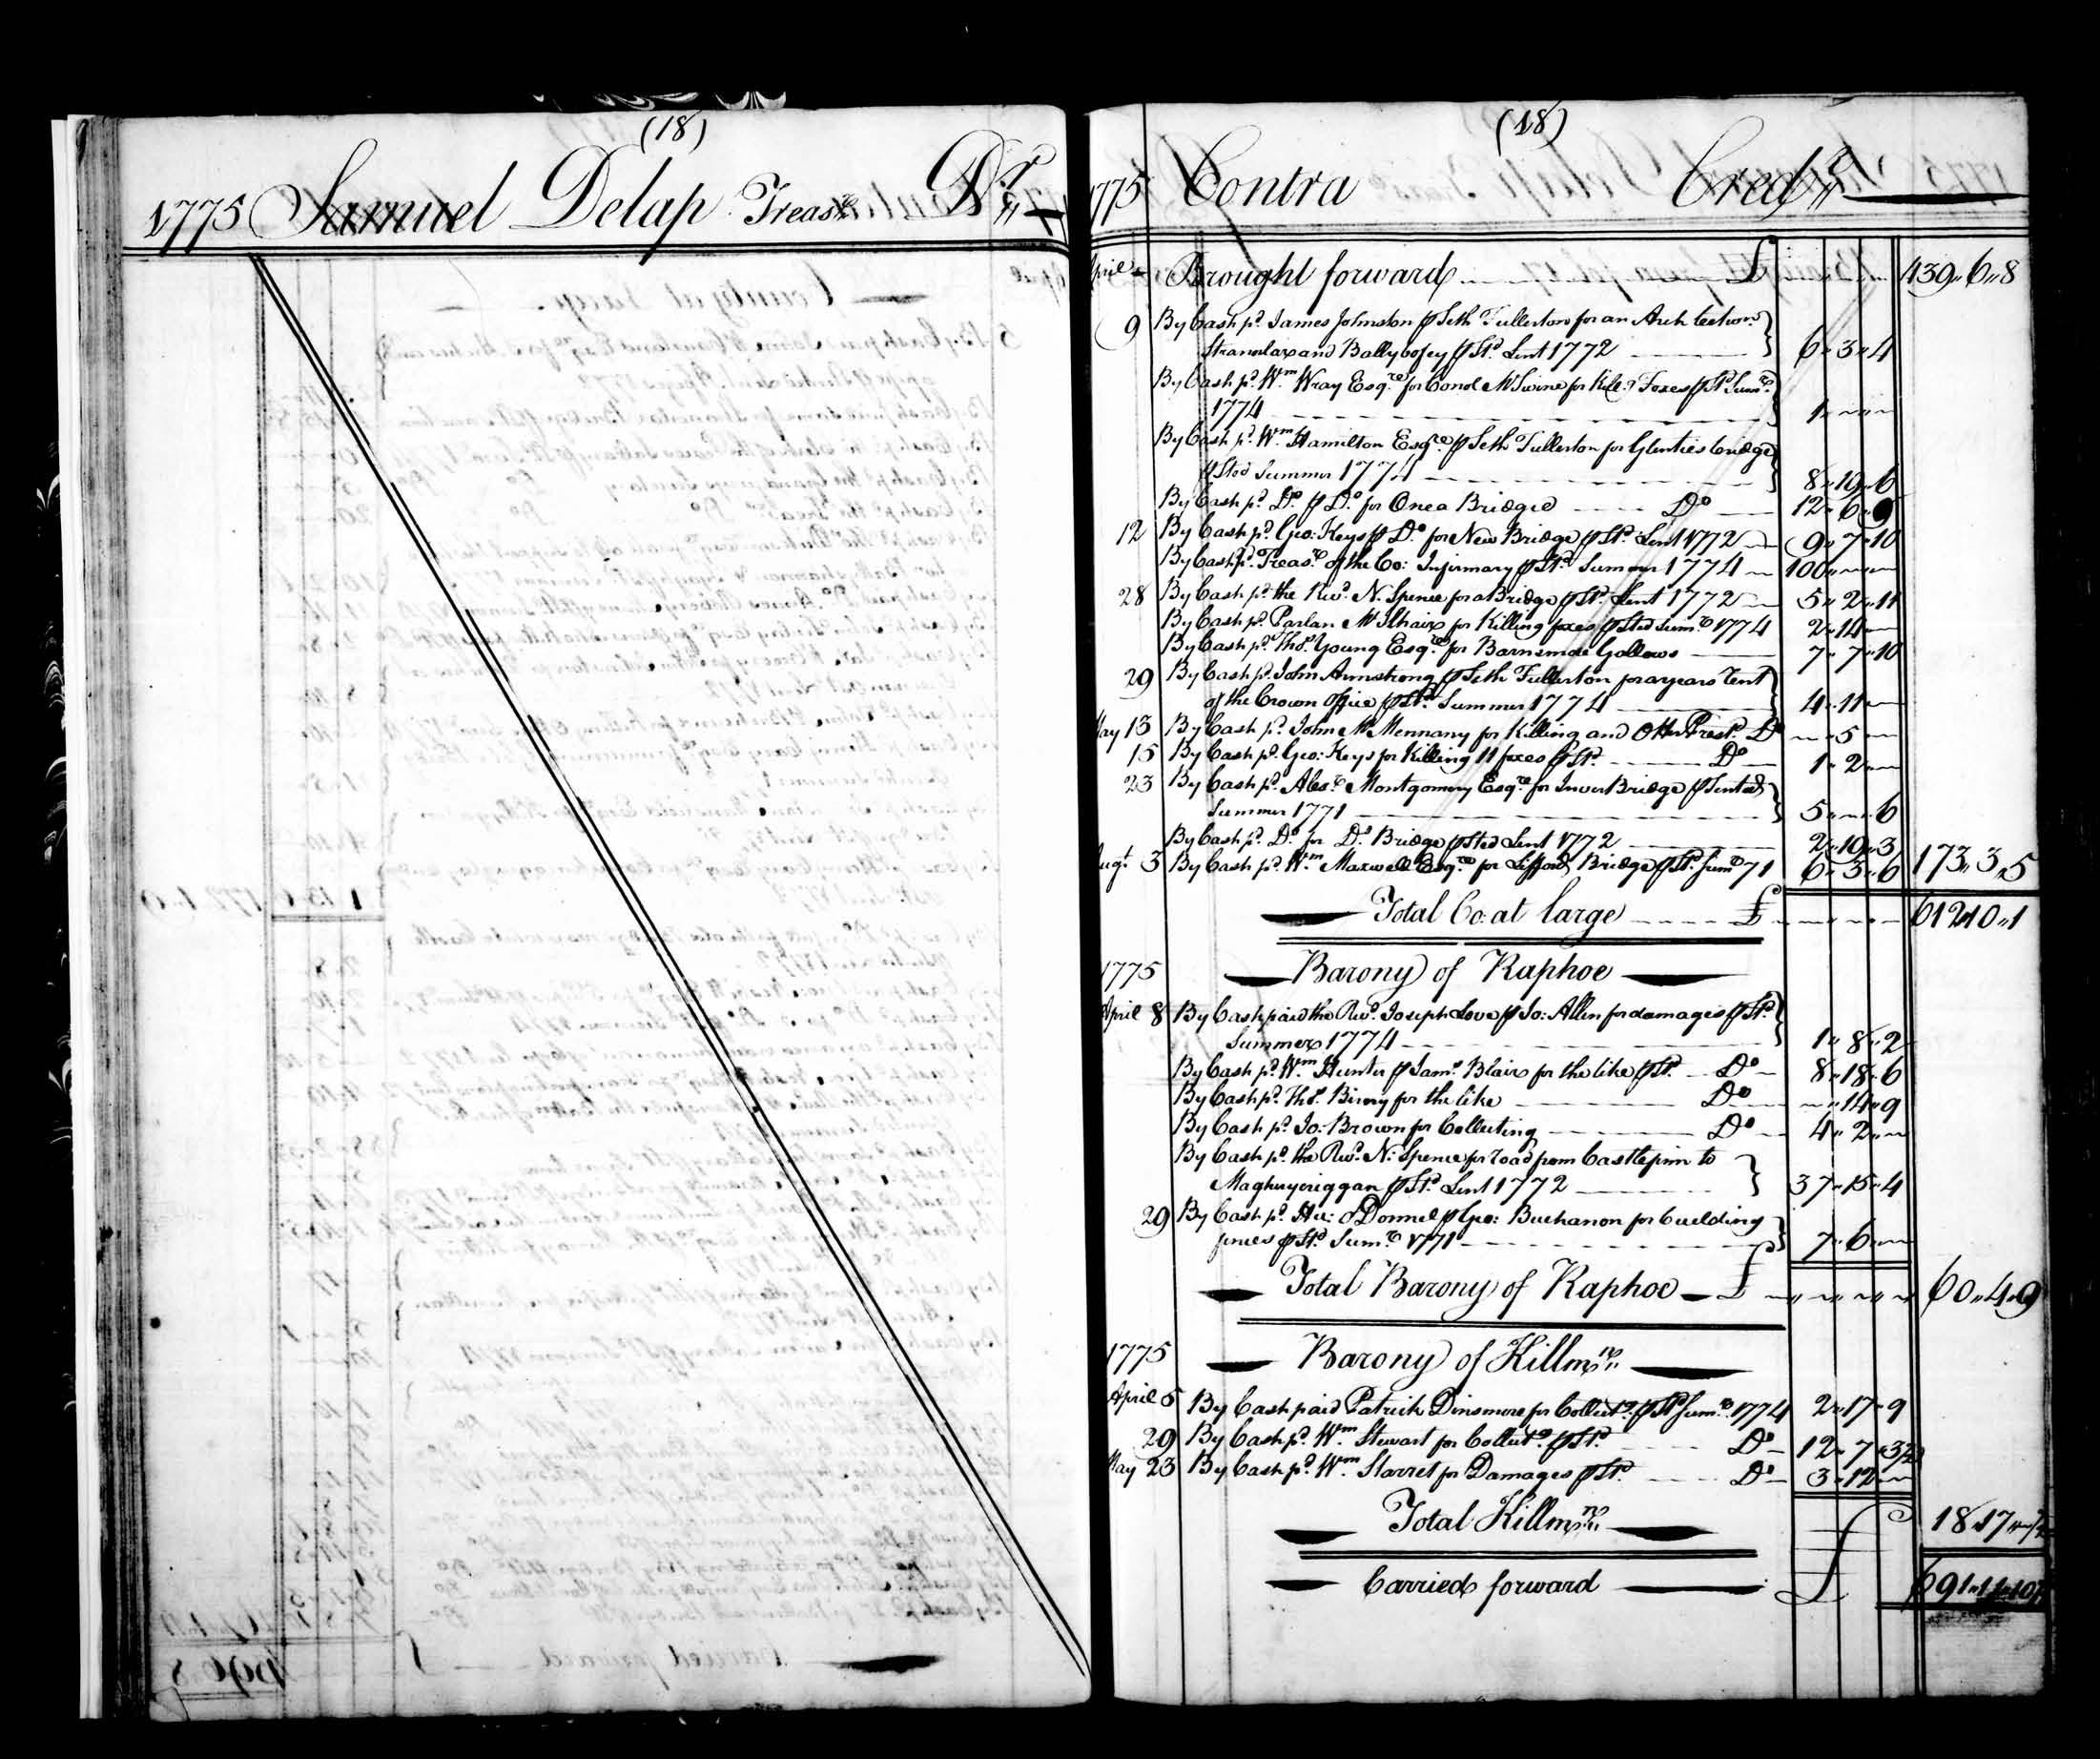 (18)
1775 Samuel Delap Treasr. Dr.
(18)
1775 Contra Credr.
April Brought forward £ 439 " 6 " 8
9 By Cash pd. James Johnston p Seth Fullerton for an Arch between
Stranolar and Ballybofey p Std. Lent 1772 6 " 3 " 4
By Cash pd. Wm. Wray Esqre. for Conol McSwine for Kill.g Foxes p Std Sumr.
1774 1 " ~ " ~
By Cash pd. Wm. Hamilton Esqre. p Seth Fullerton for Glenties bridge
p Sted Summer 1774 8 " 19 " 6
By Cash pd. Do. p Do. for Onea Bridge Do 12 " 6 " 9
12 By Cash pd. Geo: Keys p Do. for New Bridge p Std. Lent 1772 9 " 7 " 10
By Cash pd. Treasr. of the Co: Infirmary p Std. Summer 1774 100 " ~ " ~
28 By Cash pd. the Revd. N. Spence for a Bridge p Std. Lent 1772 5 " 2 " 11
By Cash pd. Parlan McIlhair for Killing foxes p Sted Sumr. 1774 2 " 14 " ~
By Cash pd. Thos. Young Esqre. for Barnsmore Gallows 7 " 7 " 10
29 By Cash pd. John Armstrong p Seth Fullerton for a years rent
of the Crown Office p Std. Summer 1774 4 " 11 " ~
May 13 By Cash pd. John McMennamy for Killing and Otter Prest. Do ~ " 5 " ~
15 By Cash pd. Geo: Keys for Killing 11 foxes p Std. Do 1 " 2 " ~
23 By Cash pd. Alexr. Montgomery Esqre. for Inver Bridge p Sented
Summer 1771 5 " ~ " 6
By Cash pd. Do. for Do. Bridge p Sted Lent 1772 2 " 19 " 3
Augt. 3 By Cash pd. Wm. Maxwell Esqre. for Lifford Bridge p Std. Sumr 71 6 " 3 " 6 173 " 3 " 5
Total Co: at large £ 612 " 10 " 1
1775 Barony of Raphoe
April 8 By Cash paid the Revd. Joseph Love p Jo: Allen for damages p Std.
Summer 1774 1 " 8 " 2
By Cash pd. Wm. Hunter p Saml. Blair for the like p Std. Do 8 " 18 " 6
By Cash pd. Thos. Birny for the like Do ~ " 14 " 9
By Cash pd. Jo: Brown for Collecting Do 4 " 2 " ~
By Cash pd. the Revd. N: Spence for road from Castlefinn to
Magheryeriggan p Std Lent 1772 37 " 15 " 4
29 By Cash pd. Hu: O'Donnel p Geo: Buchanon for building
p Std. Sumr. 1771 7 " 6 " ~
Total Barony of Raphoe £ 60 " 4 " 9
1775 Barony of Killmn.
April 5 By Cash paid Patrick Dinsmore for Collectg. p Std Sumr. 1774 2 " 17 " 9
29 By Cash pd. Wm. Stewart for Collectg. p Std. Do 12 " 7 " 3½
May 23 By Cash pd. Wm. Starret for Damages p Std. Do 3 " 12 " ~
Total Killmn. £ 18 " 17 " ~½
Carried forward £ 691 " 11 " 10½